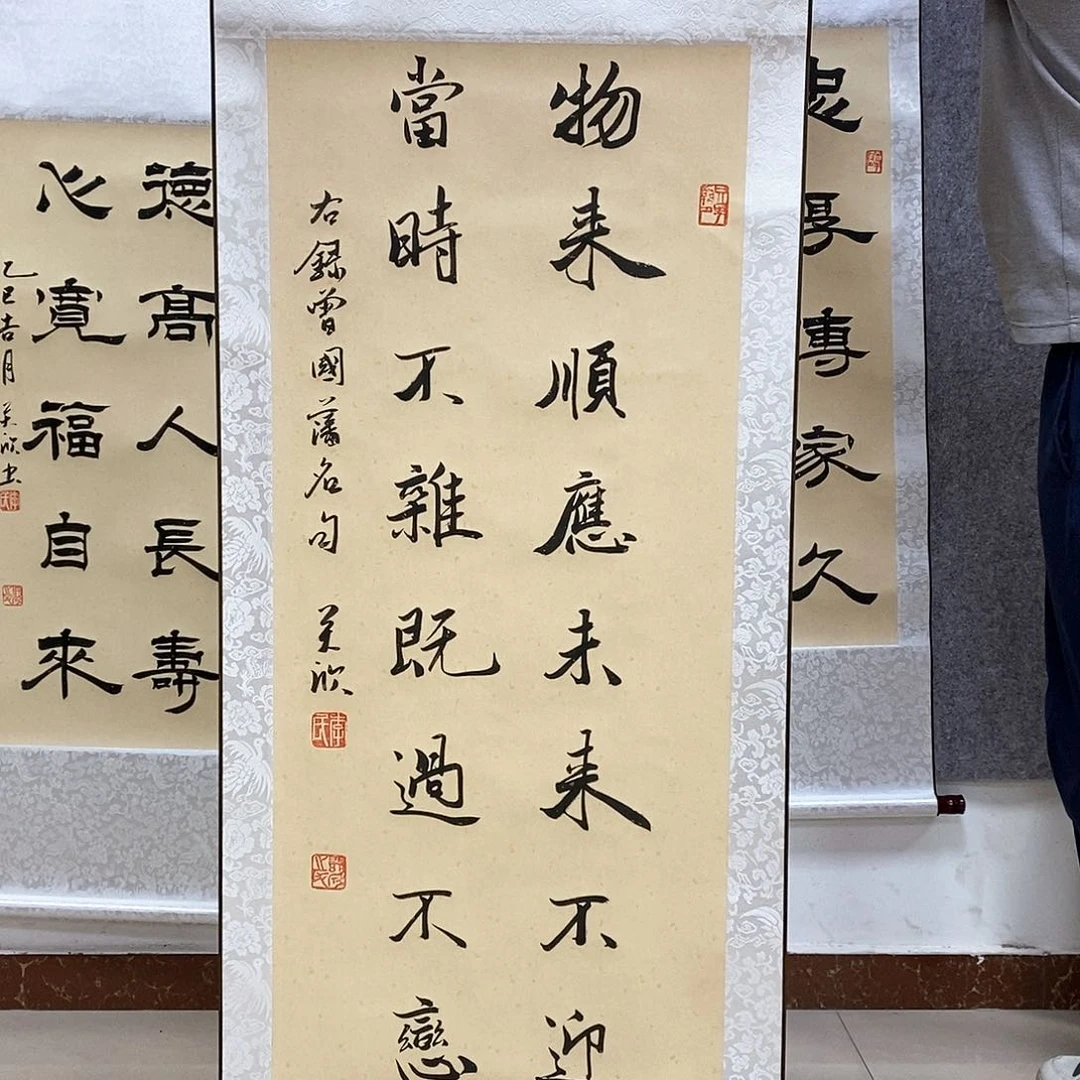 物来順應未来不迎
當時不雜既過不戀
右録曾國藩名句
美欣
忠厚專家久
德高人長壽
心寬福自來
乙巳吉月美欣书